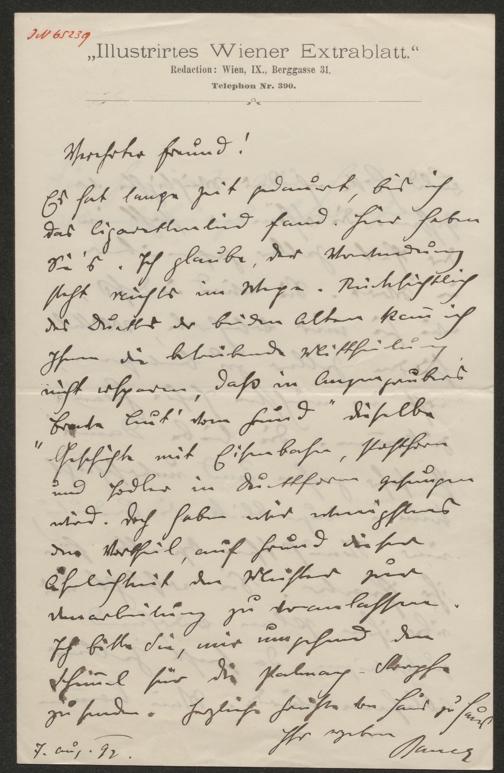 JN 65239
„Illustrirtes Wiener Extrablatt.“
Redaction: Wien, IX., Berggasse 31.
Telephon Nr. 390.
Verehrter Freund!
Es hat lange Zeit gedauert, bis ich
das Cigarettenlied fand. Hier haben
Sie's. Ich glaube, der Verwendung
steht nichts im Wege. Rücksichtlich
des Duetts der beiden Alten kann ich
Ihnen die betrübende Mittheilung
nicht ersparen, daß in Anzengrubers
„Brave Leut' vom Grund" dieselbe
Geschichte mit Eisenbahn, Posthorn
und Jodler in Duettform gesungen
wird. Doch haben wir wenigstens
den Vortheil, auf Grund dieser
Ähnlichkeit den zur
Umarbeitung zu veranlassen.
Ich bitte Sie, mir umgehend den
für die Strophe
zu senden. Herzliche Grüße von Haus zu Haus
Ihr ergebener
7. Aug. 92.